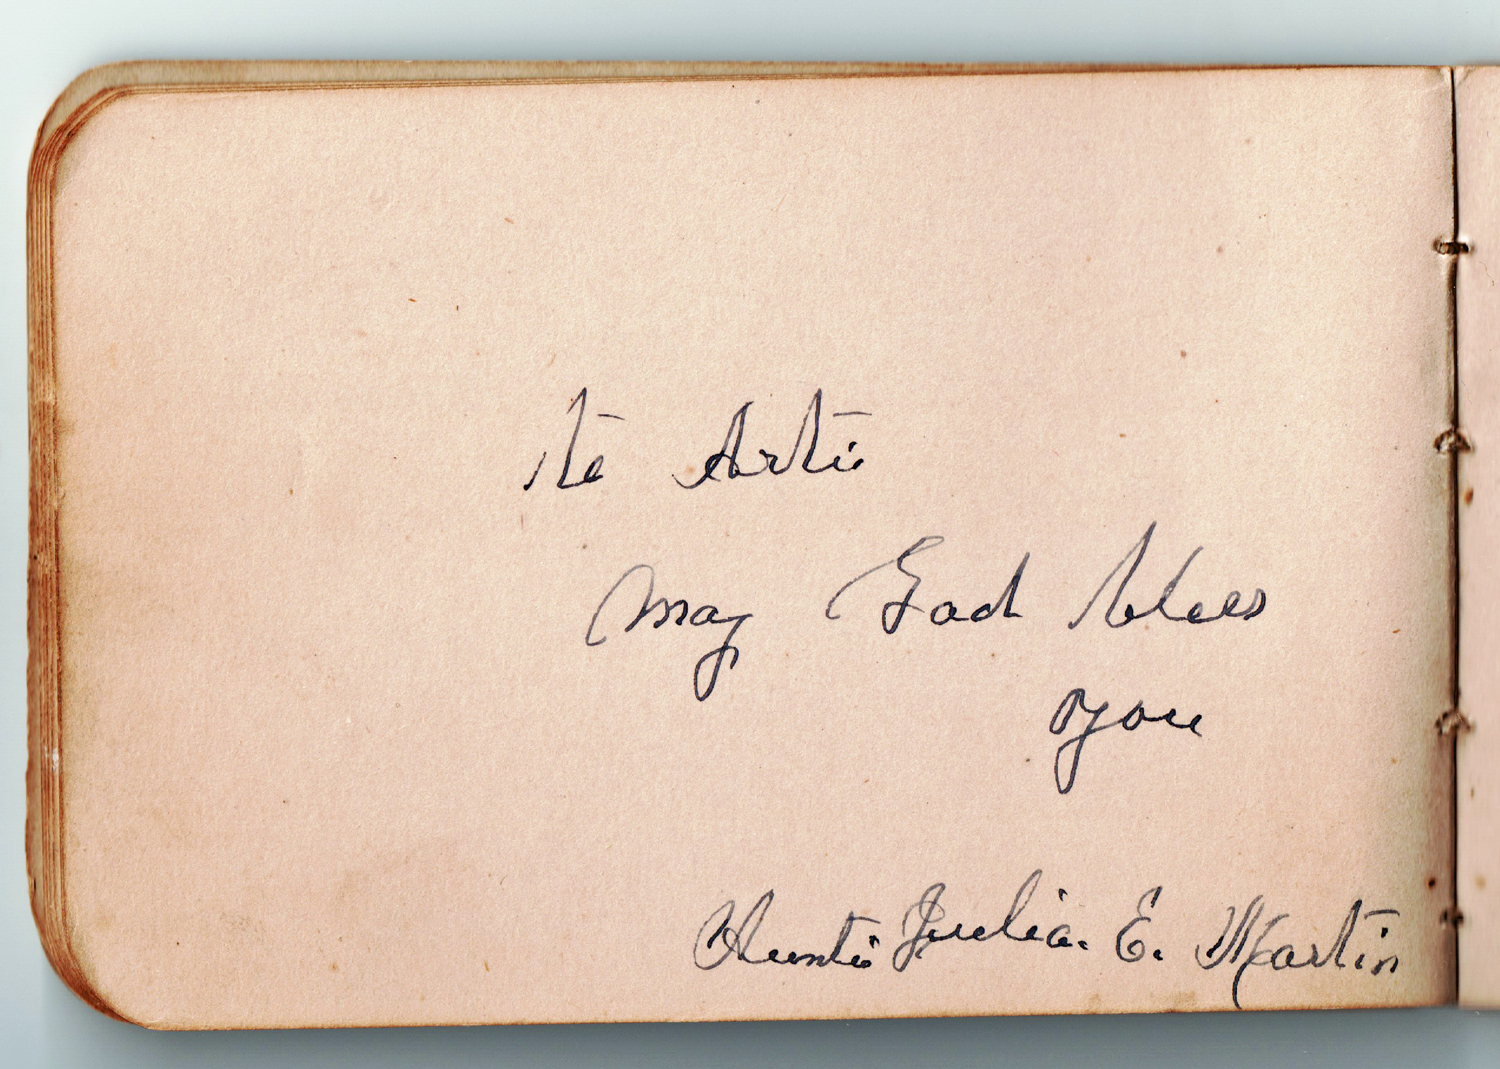 to Arti
May God bless
you
Aunti Julia. E. Martin